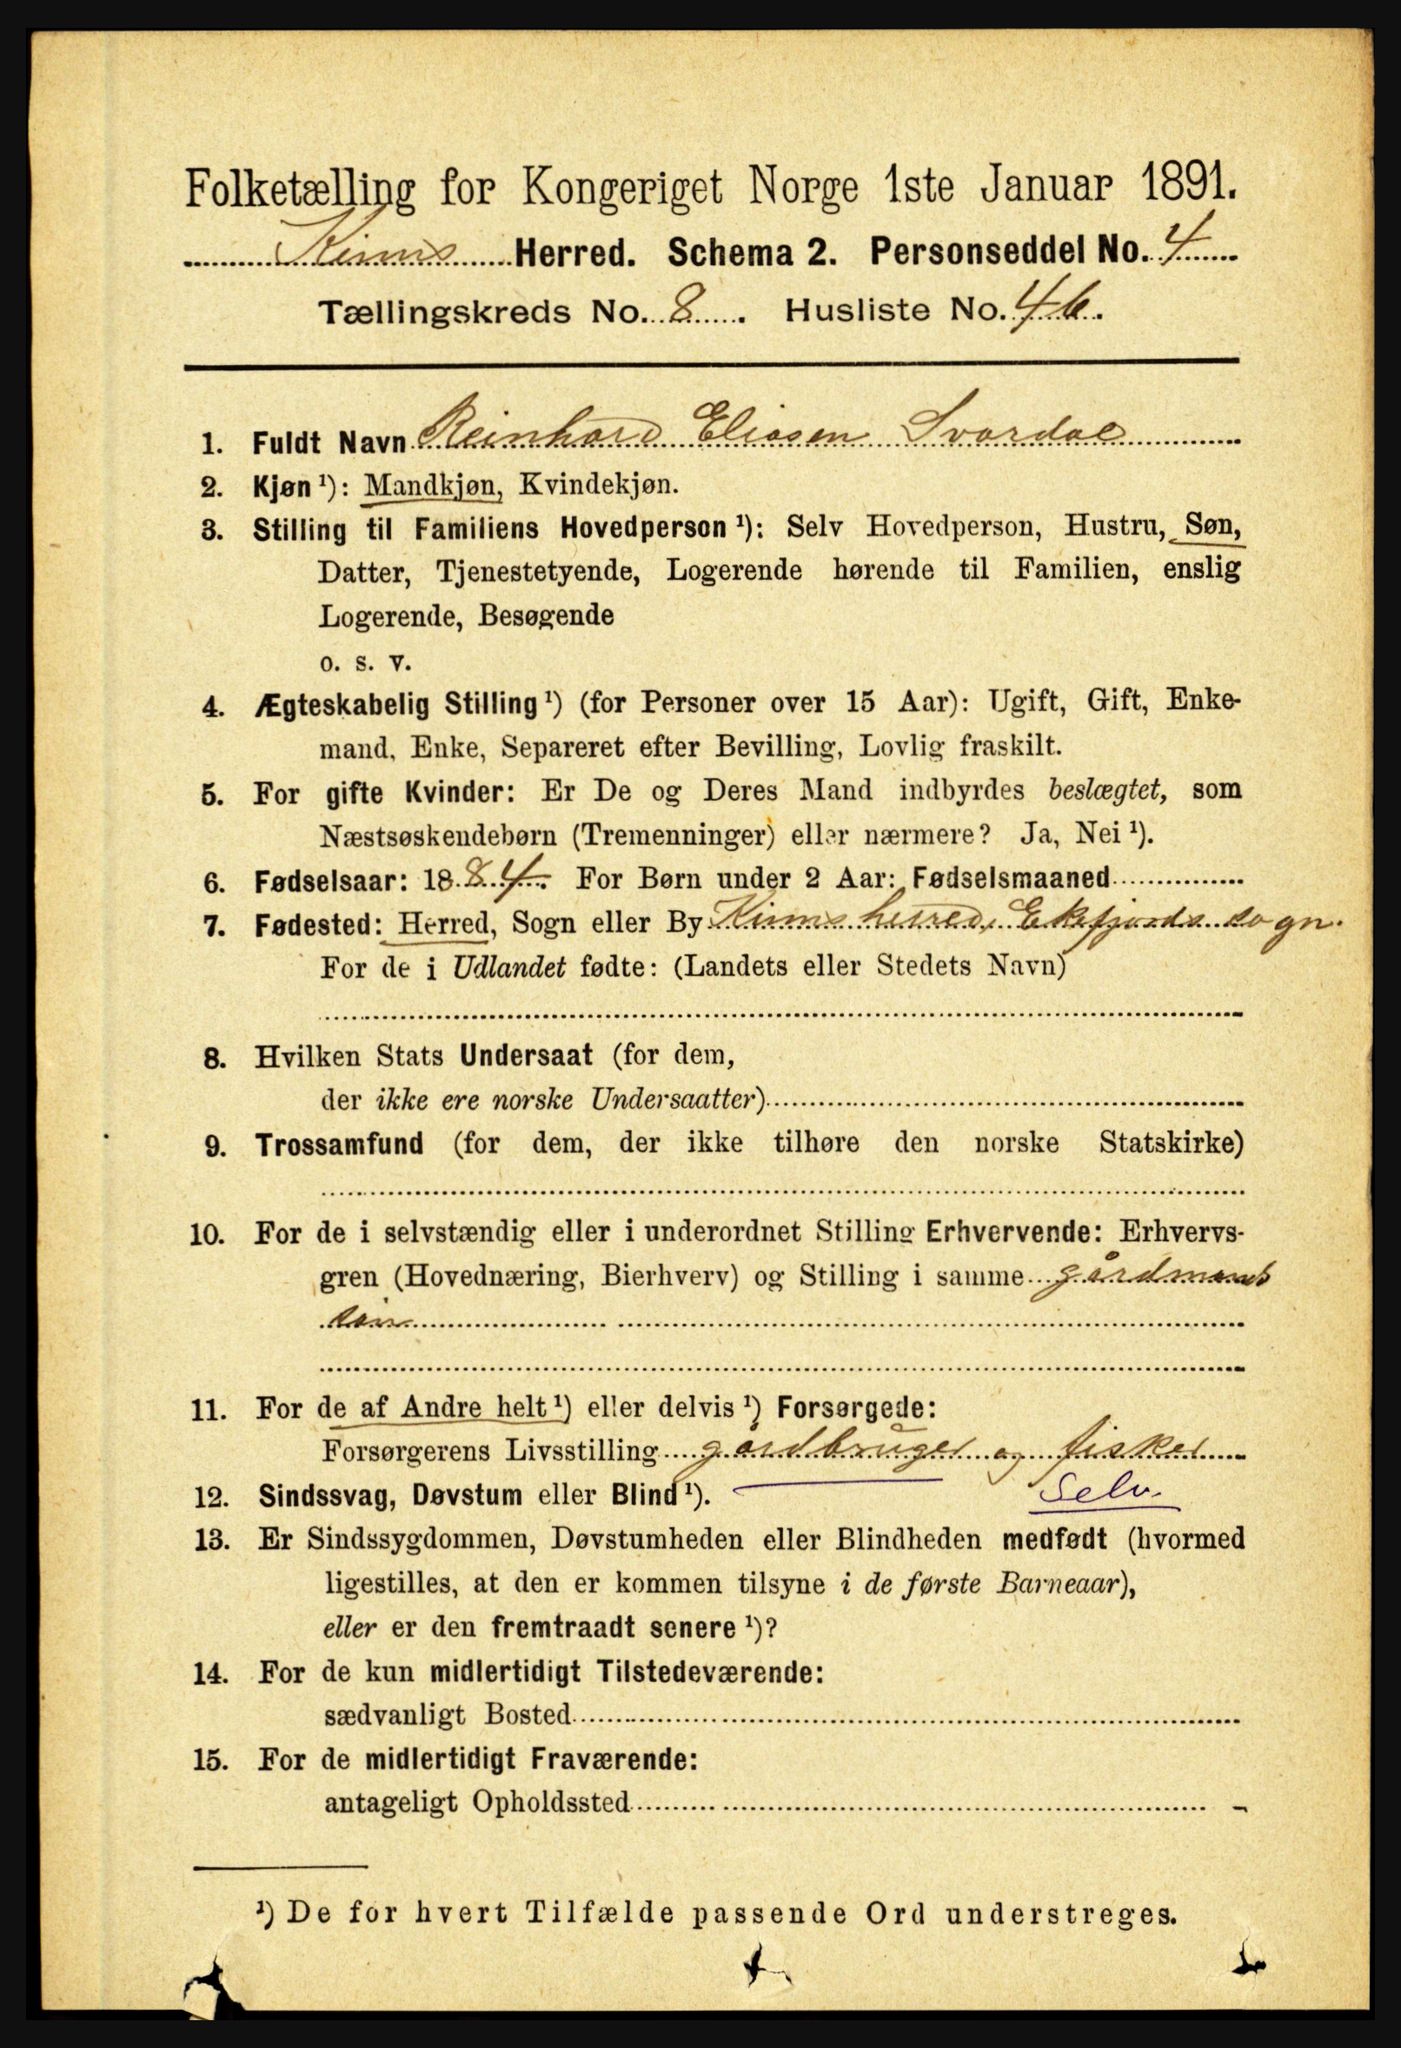 Folketælling for Kongeriget Norge 1ste Januar 1891.
Kinns Herred. Schema 2. Personseddel No. 4
Tællingskreds No. 8. Husliste No. 46.
1. Fuldt Navn Reinhard Eliasen Svardal
2. Kjøn ¹): Mandkjøn, Kvindekjøn.
3. Stilling til Familiens Hovedperson ¹): Selv Hovedperson, Hustru, Søn,
Datter, Tjenestetyende, Logerende hørende til Familien, enslig
Logerende, Besøgende
o. s. v.
4. Ægteskabelig Stilling ¹) (for Personer over 15 Aar): Ugift, Gift, Enke-
mand, Enke, Separeret efter Bevilling, Lovlig fraskilt.
5. For gifte Kvinder: Er De og Deres Mand indbyrdes beslægtet, som
Næstsøskendebørn (Tremenninger) eller nærmere? Ja, Nei ¹).
6. Fødselsaar: 1884. For Børn under 2 Aar: Fødselsmaaned
7. Fødested: Herred, Sogn eller By Kinns herred, Eikefjords sogn.
For de i Udlandet fødte: (Landets eller Stedets Navn)
8. Hvilken Stats Undersaat (for dem,
der ikke ere norske Undersaatter)
9. Trossamfund (for dem, der ikke tilhøre den norske Statskirke)
10. For de i selvstændig eller i underordnet Stilling Erhvervende: Erhvervs-
gren (Hovednæring, Bierhverv) og Stilling i samme gårdmands
søn
11. For de af Andre helt ¹) eller delvis ¹) Forsørgede:
Forsørgerens Livsstilling gårdbruger og fisker
12. Sindssvag, Døvstum eller Blind ¹). Selv
13. Er Sindssygdommen, Døvstumheden eller Blindheden medfødt (hvormed
ligestilles, at den er kommen tilsyne i de første Barneaar),
eller er den fremtraadt senere ¹)?
14. For de kun midlertidigt Tilstedeværende:
sædvanligt Bosted
15. For de midlertidigt Fraværende:
antageligt Opholdssted
¹) De for hvert Tilfælde passende Ord understreges.